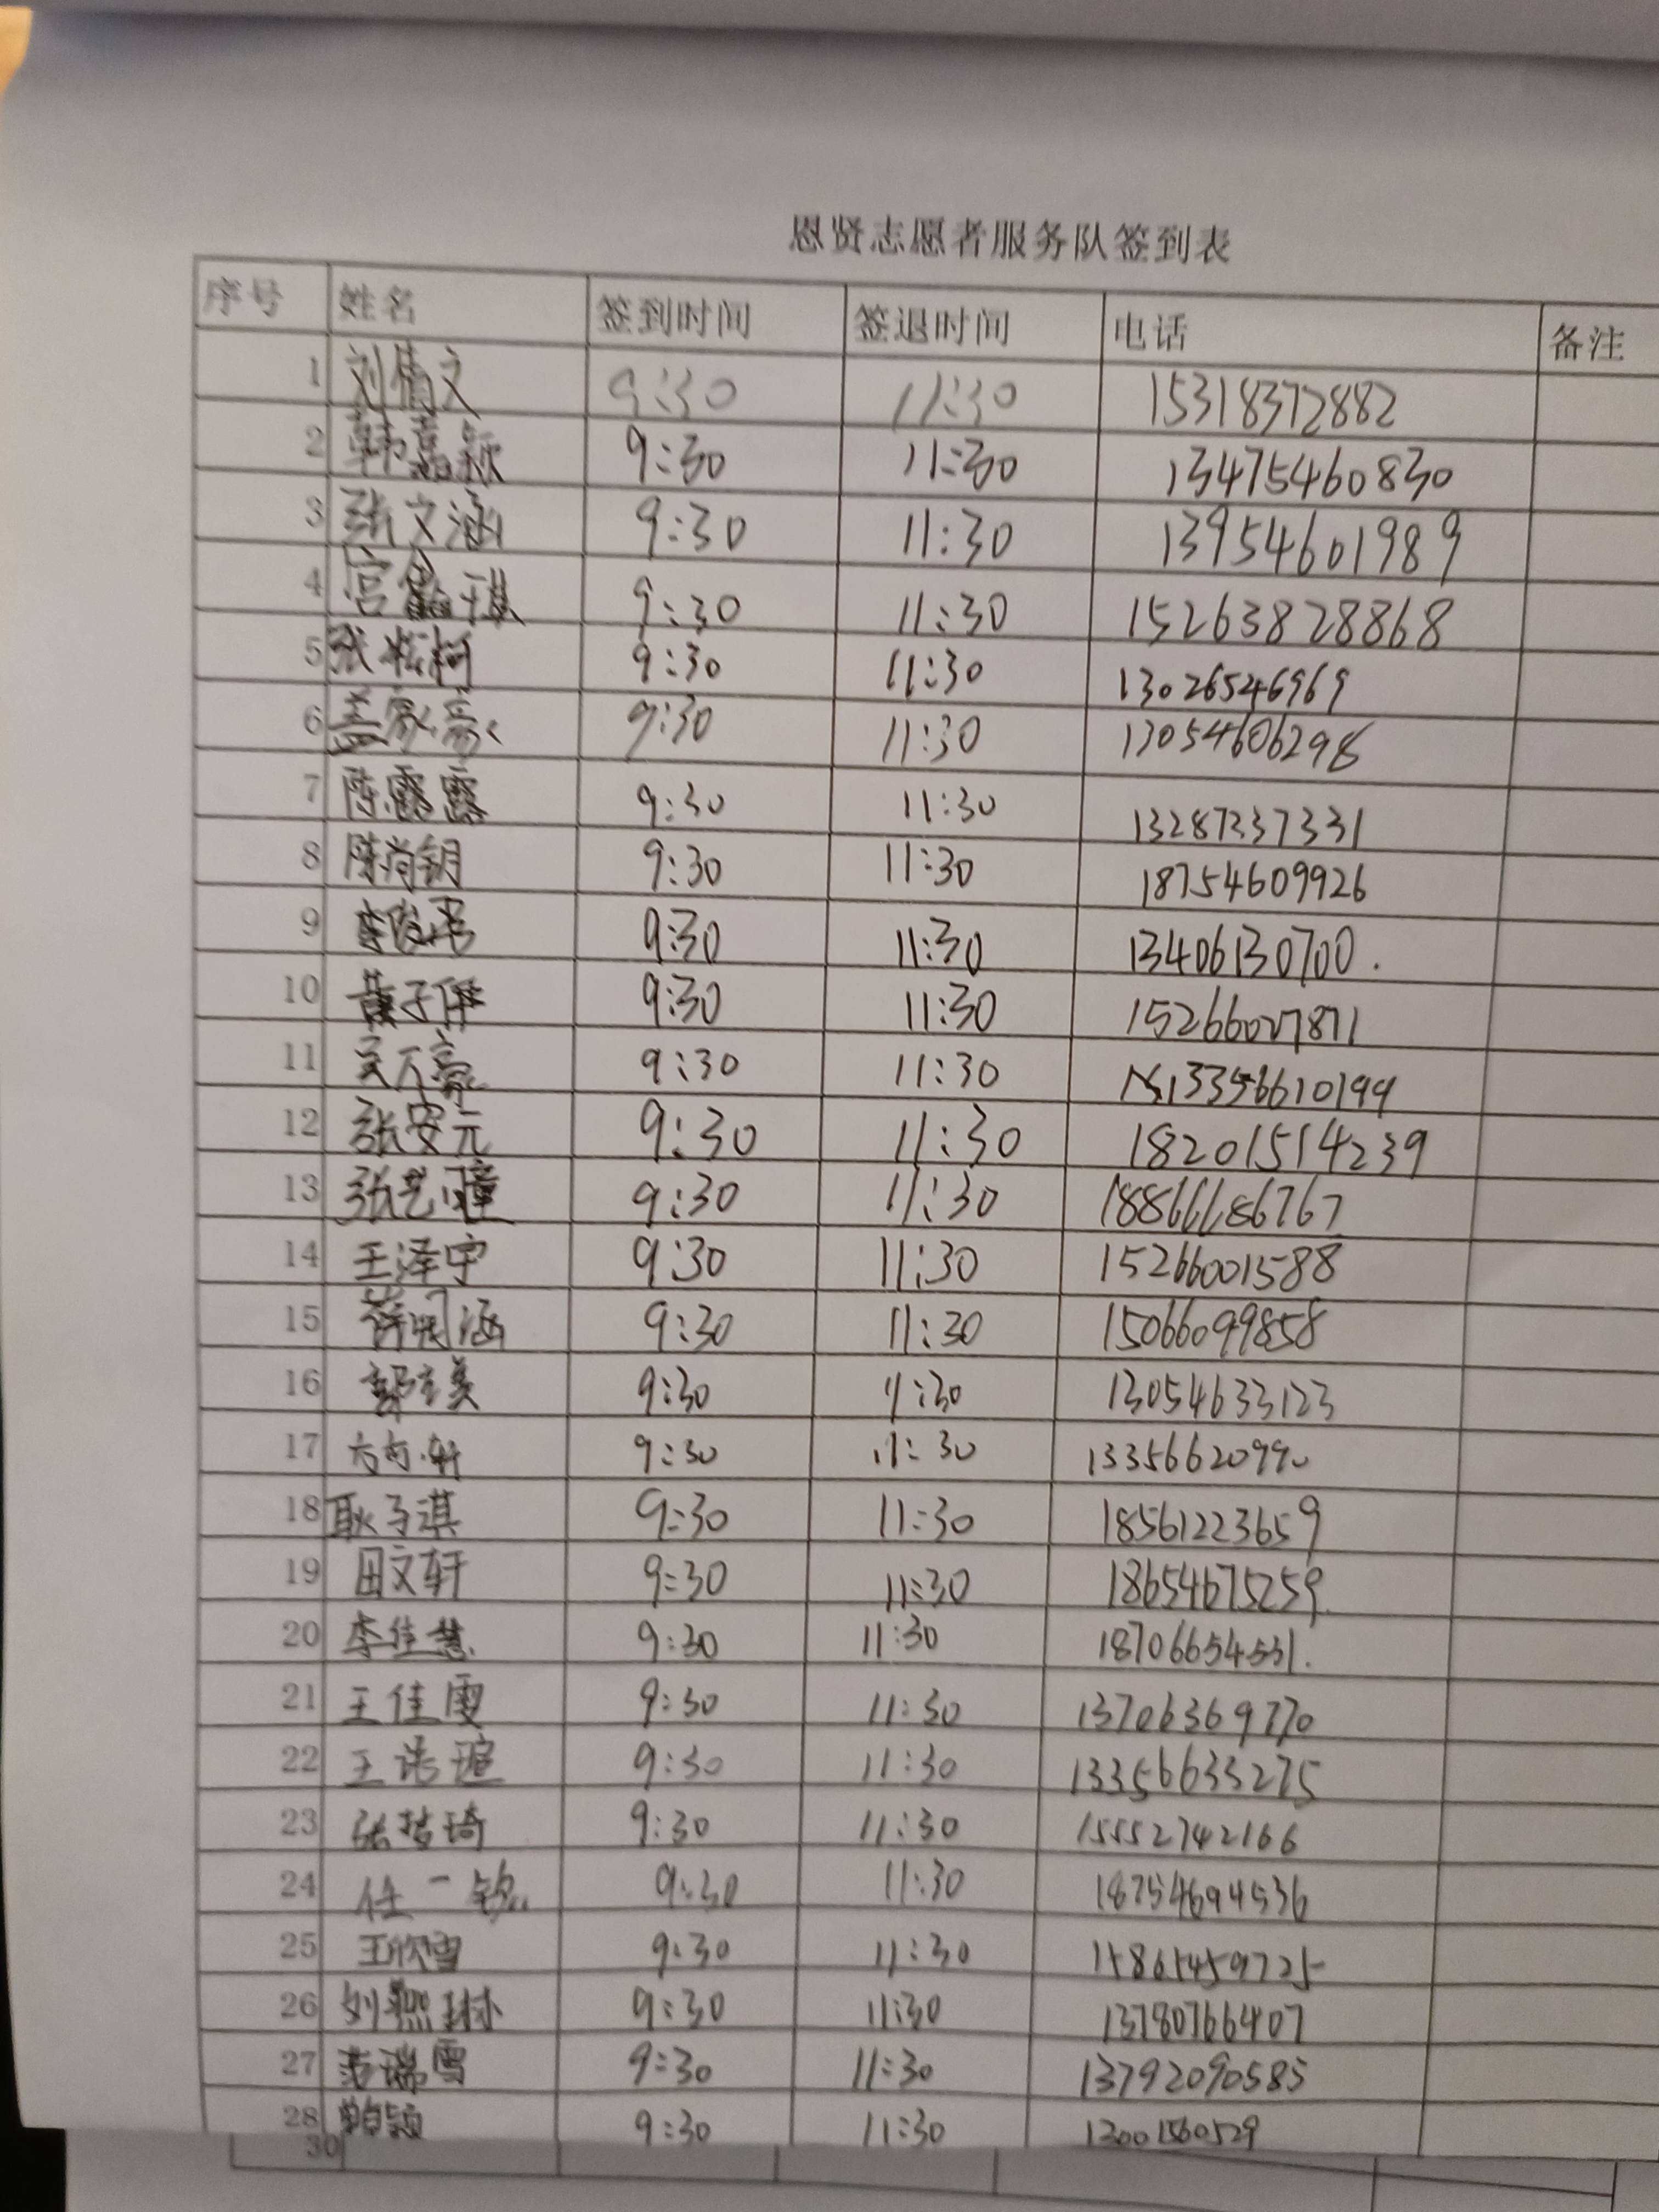 恩贤志愿者服务队签到表
序号 姓名 签到时间 签退时间 电话 备注
1 刘倩文 9:30 11:30 15318372882
2 韩嘉颖 9:30 11:30 13475460830
3 张文涵 9:30 11:30 13954601989
4 宫 琪 9:30 11:30 15263828868
5 张 柯 9:30 11:30 13026546969
6 盖家豪 9:30 11:30 13054606298
7 陈露露 9:30 11:30 13287237331
8 陈尚钥 9:30 11:30 18754609926
9 李俊 9:30 11:30 13406130700.
10 子 9:30 11:30 15266007871
11 9:30 11:30 13356610199
12 张安元 9:30 11:30 18201514239
13 张艺瞳 9:30 11:30 18866686767
14 王泽宇 9:30 11:30 15266001588
15 薛 涵 9:30 11:30 15066099858
16 美 9:30 11:30 13054633123
17 轩 9:30 11:30 13356620990
18 耿子淇 9:30 11:30 18561223659
19 田文轩 9:30 11:30 18654675259.
20 李佳慧 9:30 11:30 18706654531.
21 王佳雯 9:30 11:30 13706369770
22 王 瑄 9:30 11:30 13356633275
23 张 琦 9:30 11:30 15552742166
24 任一铭 9:30 11:30 18754694536
25 王欣雪 9:30 11:30 15865459725
26 刘熙琳 9:30 11:30 13780766407
27 范瑞雪 9:30 11:30 13792090585
28 颖 9:30 11:30 13001560529
30